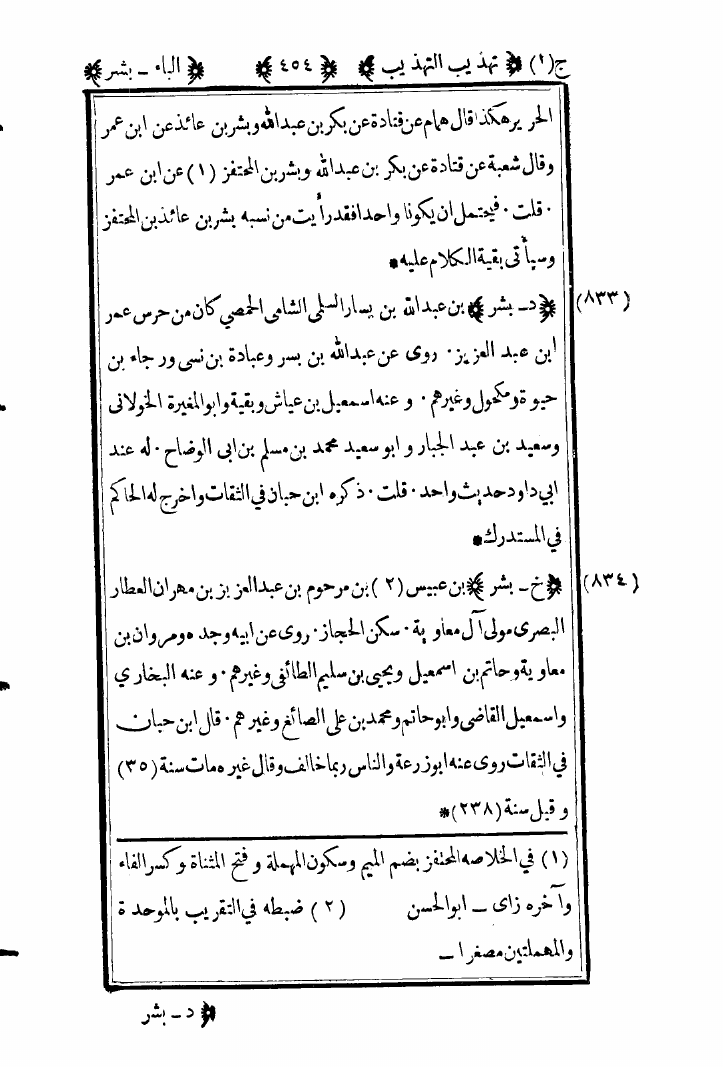 ج(١) ﴿ تهذيب التهذيب ﴾ ﴿ ٤٥٤ ﴾ ﴿ الباء ــ بشر ﴾
الحرير هكذا قال همام عن قتادة عن بكر بن عبدالله وبشر بن عائذ عن ابن عمر
وقال شعبة عن قتادة عن بكر بن عبدالله وبشر بن المحتفز (١) عن ابن عمر
٠ قلت ٠ فيحتمل ان يكونا واحدا فقد رأيت من نسبه بشر بن عائذ بن المحتفز
وسيأتى بقية الكلام عليه *
(٨٣٣) ﴿ د ــ بشر ﴾ بن عبدالله بن يسار السلمى الشامى الحمصي كان من حرس عمر
ابن عبد العزيز ٠ روى عن عبدالله بن بسر وعبادة بن نسى ورجاء بن
حيوة ومكحول وغيرهم ٠ وعنه اسمعيل بن عياش وبقية وابو المغيرة الخولانى
وسعيد بن عبد الجبار وابو سعيد محمد بن مسلم بن ابى الوضاح ٠ له عند
ابي داود حديث واحد ٠ قلت ٠ ذكره ابن حبان في الثقات واخرج له الحاكم
في المستدرك *
(٨٣٤) ﴿ خ ــ بشر ﴾ بن عبيس (٢) بن مرحوم بن عبد العزيز بن مهران العطار
البصرى مولى آل معاوية ٠ سكن الحجاز ٠ روى عن ابيه وجده ومروان بن
معاوية وحاتم بن اسمعيل ويحيى بن سليم الطائفى وغيرهم ٠ وعنه البخاري
واسمعيل القاضى وابو حاتم ومحمد بن على الصائغ وغيرهم ٠ قال ابن حبان
في الثقات روى عنه ابو زرعة والناس ربما خالف وقال غيره مات سنة (٣٥)
وقبل سنة (٢٣٨) *
(١) في الخلاصه المحتفز بضم الميم وسكون المهملة وفتح المثناة وكسر الفاء
وآخره زاى ــ ابو الحسن (٢) ضبطه في التقريب بالموحدة
والمهملتين مصغرا ــ
﴿ د ــ بشر